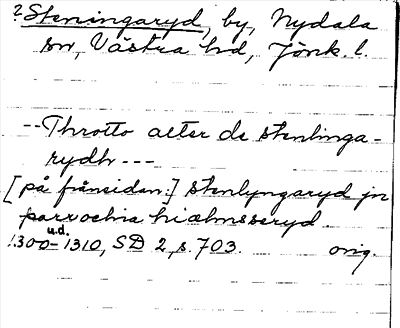 ? Steningaryd, by, Nydala
sn, Västra hd, Jönk. l.
-- Throtto alter de stenlinga-
rydh ---
[på frånsidan:] stenlyngaryd jn
parrochia hiælmsseryd.
u.d.
1300-1310, SD 2, s. 703. orig.